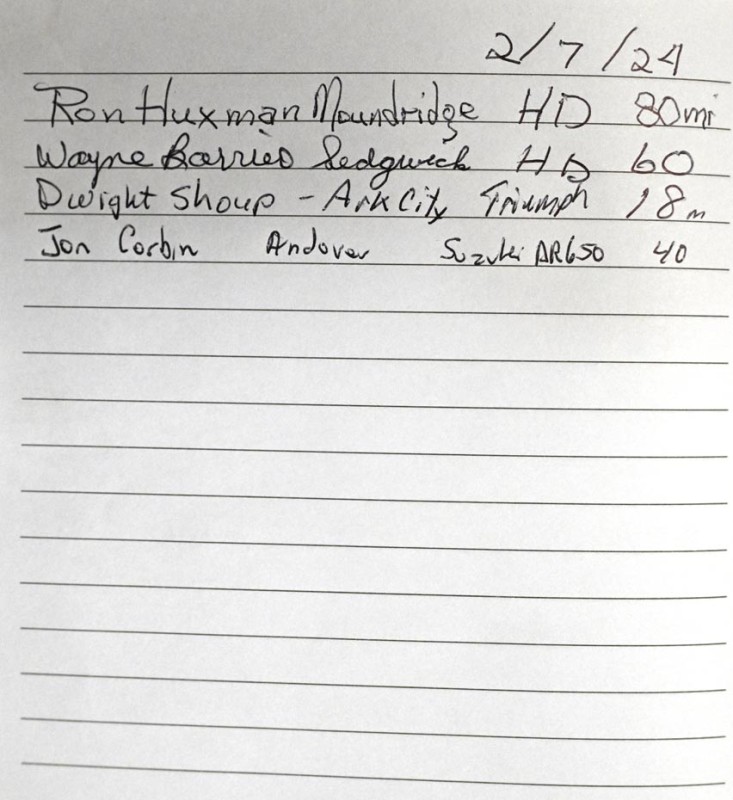 2/7/24
Ron Huxman Moundridge HD 80mi
Wayne Sedgwick HD 60
Dwight Shoup - Ark City Triumph 18m
Jon Corbin Andover Suzuki DR650 40